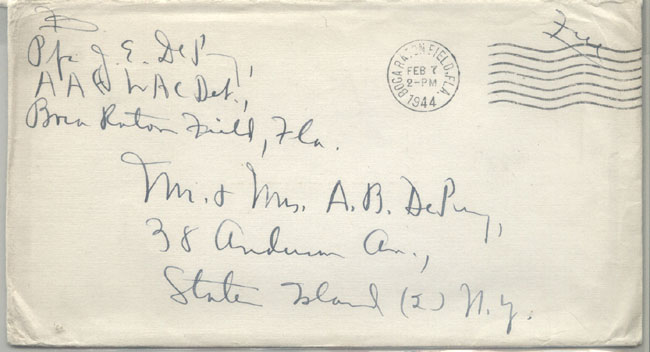 Free
Pfc J. E. DePuy,
AAF WAC Det.,
Boca Raton Field, Fla.
BOCA RATON FIELD, FLA.
FEB 7
2-PM
1944
Mr. & Mrs. A. B. DePuy,
38 Anderson Av.,
Staten Island (2) N.Y.